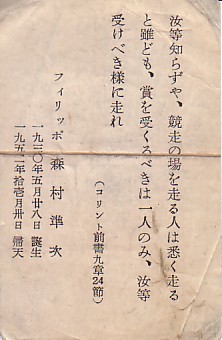 汝等知らずや、競走の場を走る人は悉く走る
と雖ども、賞を受くるべきは一人のみ、汝等
受けべき様に走れ
(コリント前書九章24節)
フィリッポ 森村準次
一九三〇年五月廿八日誕生
一九五二年拾壱月卅日帰天